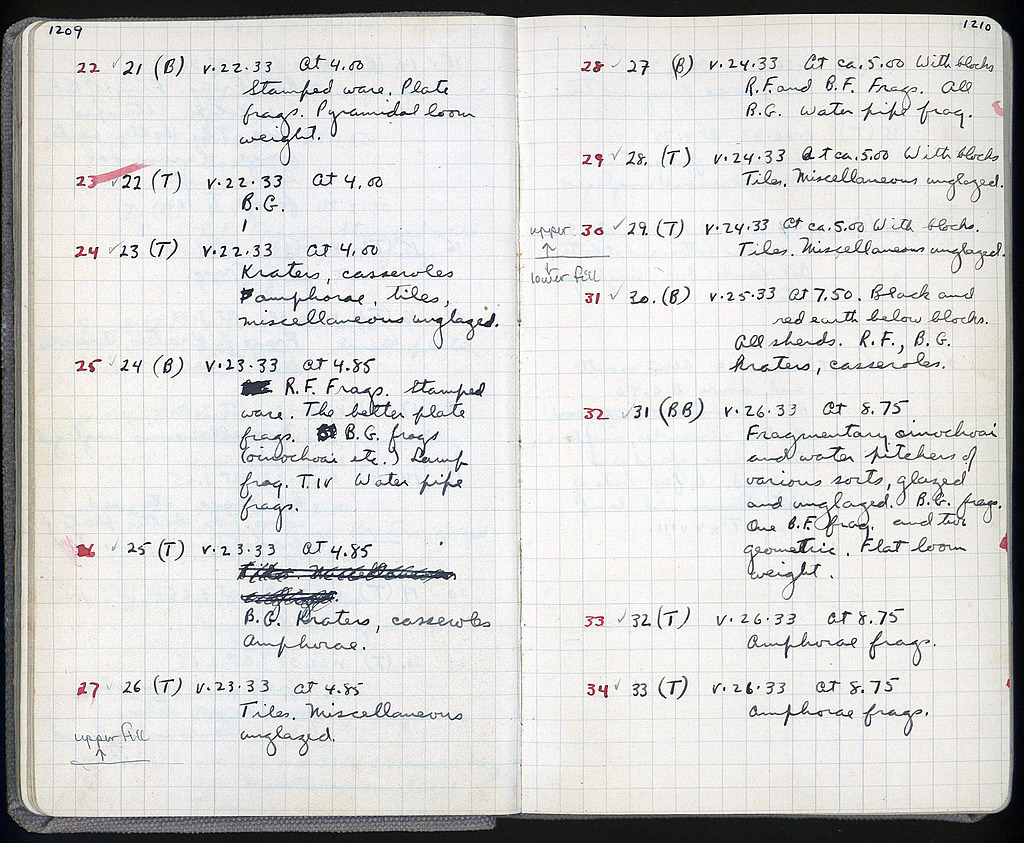 1209
22 ✓ 21 (B) V.22.33 At 4.00
Stamped ware. Plate
frags. Pyramidal loom
weight.
23 ✓ 22 (T) V.22.33 At 4.00
B.G.
1
24 ✓ 23 (T) V.22.33 At 4.00
Kraters, casseroles
amphorae, tiles,
miscellaneous unglazed.
25 ✓ 24 (B) V.23.33 At 4.85
R.F. Frags. Stamped
ware. The better plate
frags. B.G. frags
(oinochoai etc.) Lamp
frag. T. IV Water pipe
frags.
26 ✓ 25 (T) V.23.33 At 4.85
B.G. Kraters, casseroles
Amphorae.
27 ✓ 26 (T) V.23.33 At 4.85
Tiles. Miscellaneous
unglazed.
upper fill
↑
1210
28 ✓ 27 (B) V.24.33 At ca. 5.00 With blocks
R.F. and B.F. Frags. All
B.G. Water pipe frag.
29 ✓ 28. (T) V.24.33 At ca. 5.00 With blocks
Tiles. Miscellaneous unglazed.
upper 30 ✓ 29. (T) V.24.33 At ca. 5.00 With blocks.
↑ Tiles. Miscellaneous unglazed.
↓
lower fill
31 ✓ 30. (B) V.25.33 At 7.50. Black and
red earth below blocks.
All sherds. R.F., B.G.
Kraters, casseroles.
32 ✓ 31 (BB) V.26.33 At 8.75
Fragmentary oinochoai
and water pitchers of
various sorts, glazed
and unglazed. B.G. frags.
One B.F. frag. and two
geometric. Flat loom
weight.
33 ✓ 32 (T) V.26.33 At 8.75
Amphorae frags.
34 ✓ 33 (T) V.26.33 At 8.75
Amphorae frags.